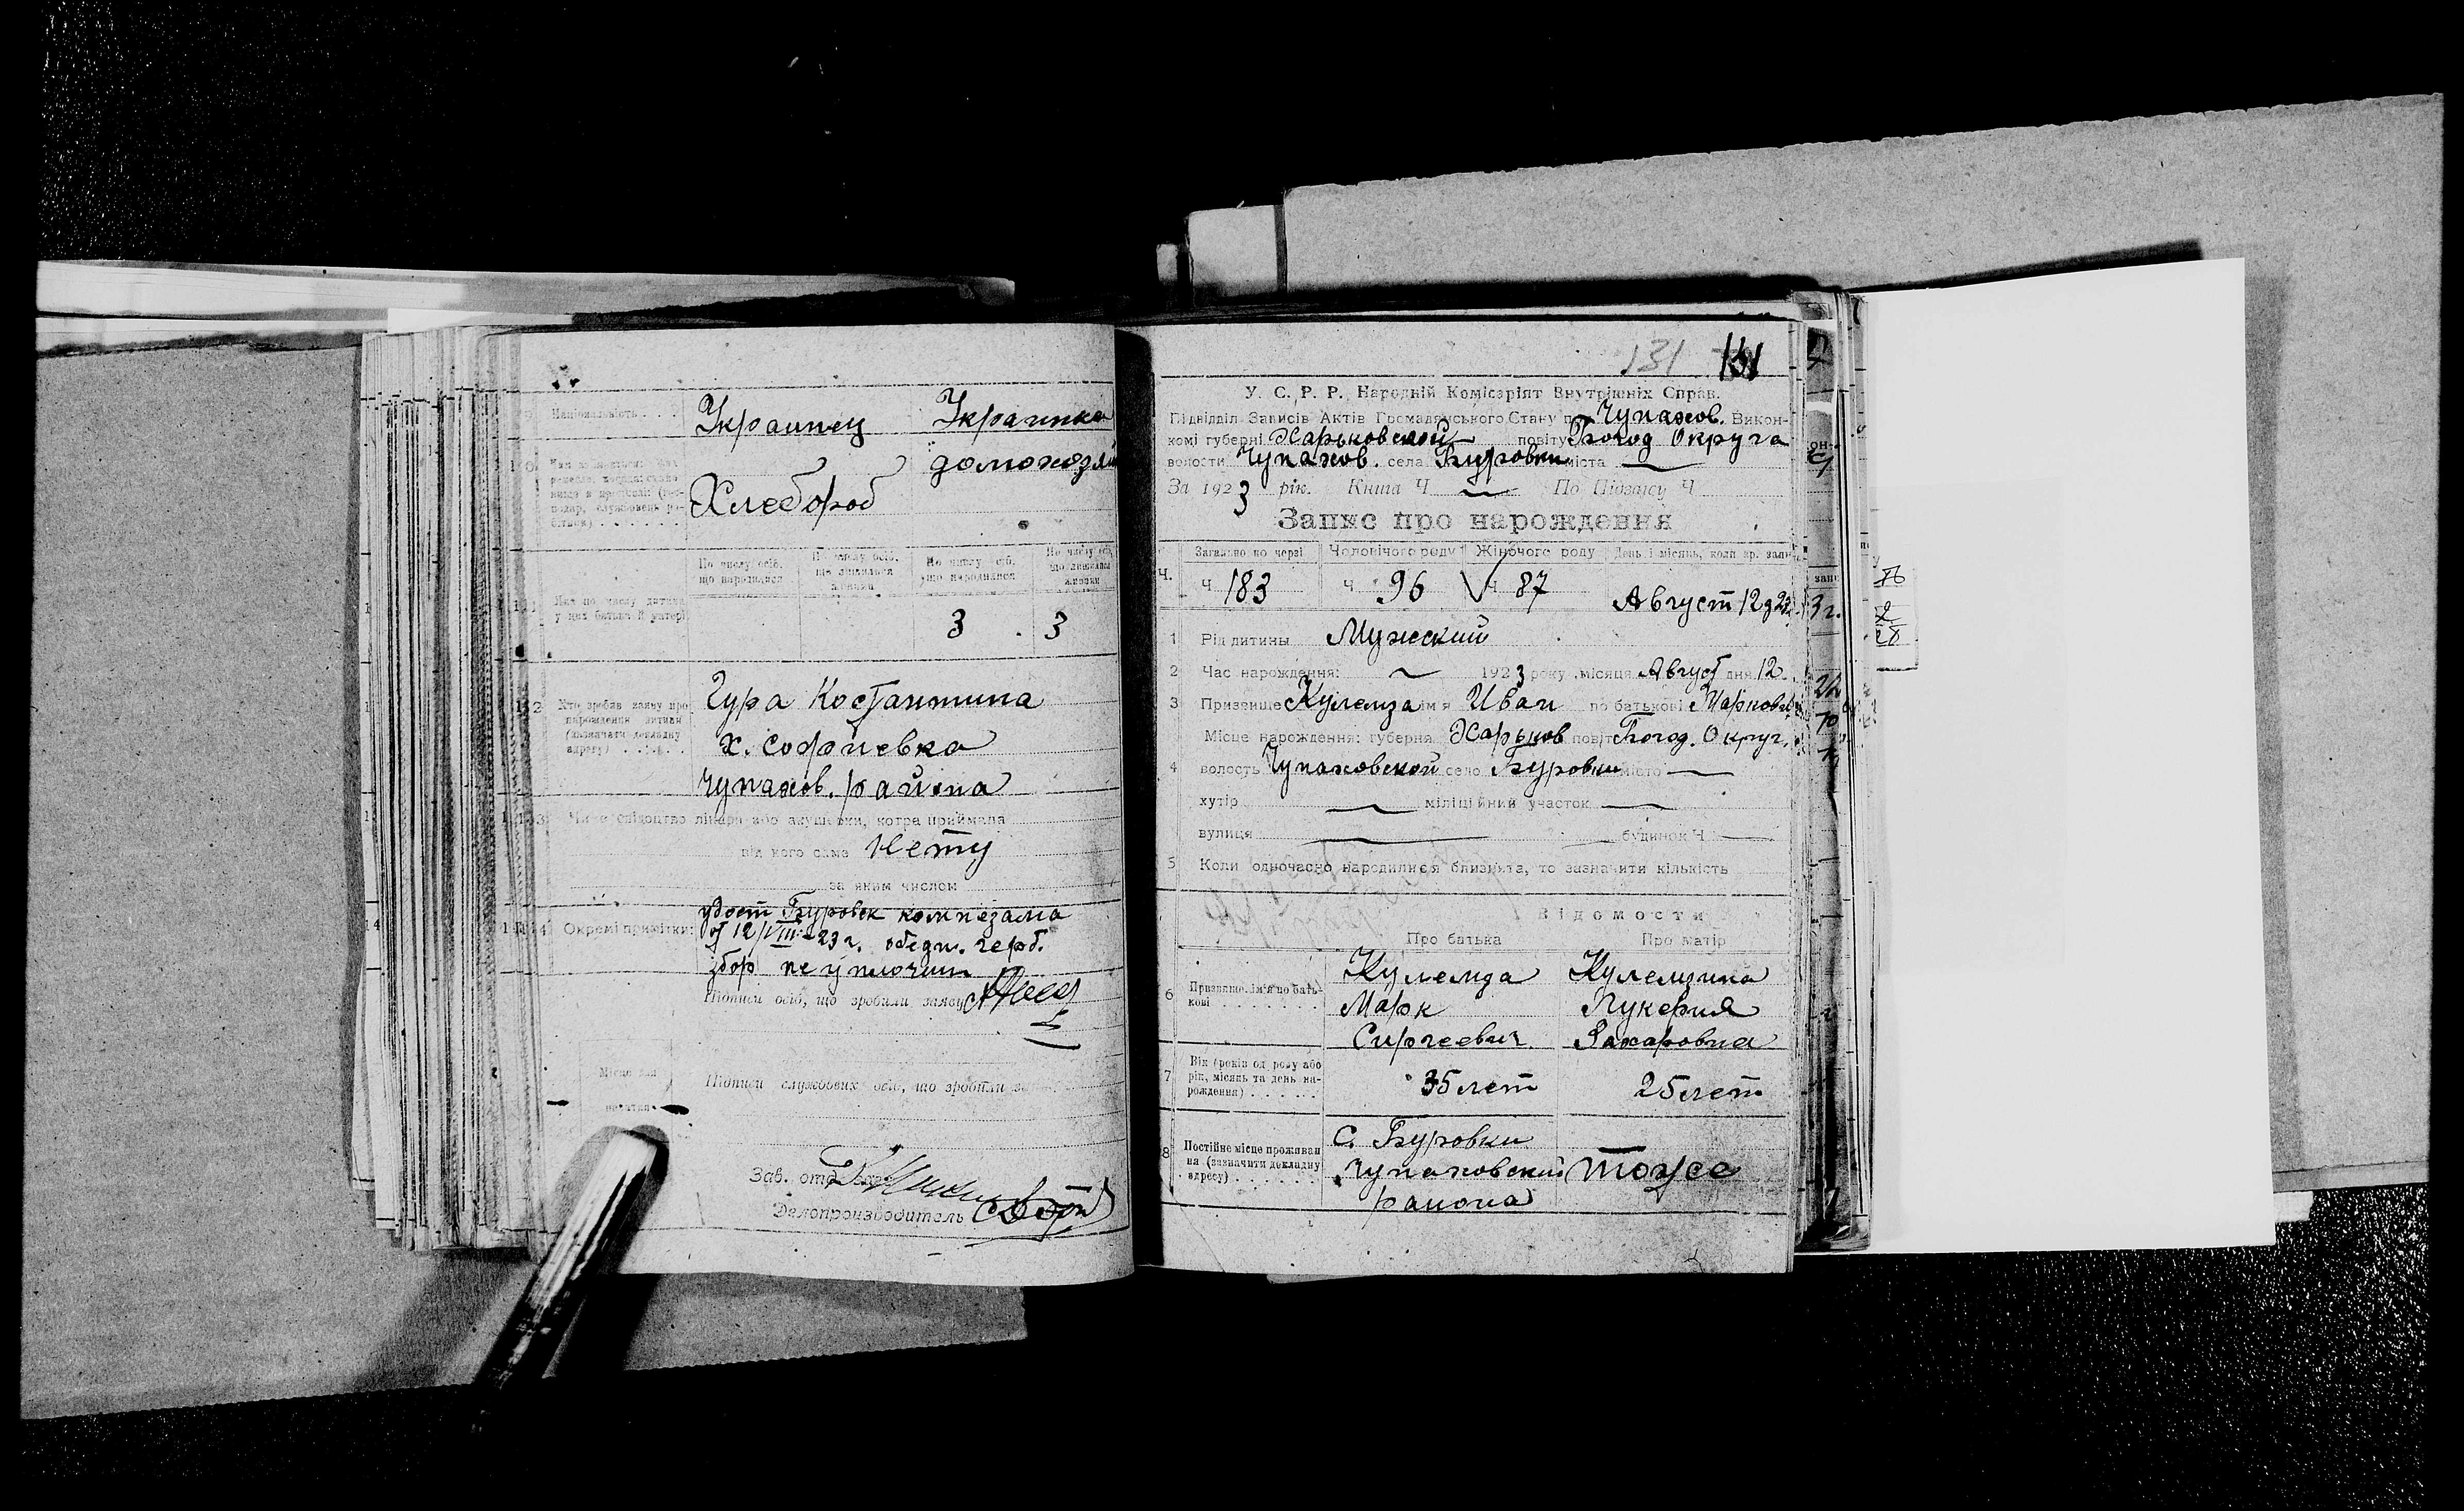 9 Національність . . . Украинец Украинка
10 домохозяй
Хлебороб
По числу осіб, що народилися По числу осіб, що лишилися живими По числу осіб, що народилися По числу осіб, що лишилися живими
11 у них батька й матері 3 3
12 Хто зробив заяву про народження дитини (зазначити докладну адресу) Гура Костантина
х. Софиевка
Чупахов. района
13 Чи є свідоцтво лікаря або акушерки, котра приймала
від кого саме Нету
за яким числом
14 Окремі примітки: удост Буровск комнезама
от 12/VIII-23 г. обедн. герб.
збор не уплочин
Підписи осіб, що зробили заяву
Місце для
печатки
Підписи службових осіб, що зробили
Зав. отд
Делопроизводитель
131 131
У. С. Р. Р. Народній Комісаріят Внутрішніх Справ.
Підвідділ Записів Актів Громадянського Стану при Чупахов. Викон-
комі губерні Харьковской повіту Богод Округа
волости Чупахов. села Буровки міста —
За 1923 рік. Книга Ч — По Підзапису Ч
Запис про народження
Ч. Загально по черзі Чоловічого роду Жіночого роду День і місяць, коли вр. запи
Ч 183 Ч 96 Ч 87 Август 12 д 23
1 Рід дитини Мужеский
2 Час народження: 1923 року місяця Август дня 12
3 Призвище Кулемза ім'я Иван по батькові Маркович
Місце народження: губерня Харьков повіт Богод. Округ.
4 волость Чупаховской село Буровки місто —
хутір — міліційний участок —
вулиця — будинок Ч —
5 Коли одночасно народилися близнята, то зазначити кількість
Відомости
Про батька Про матір
6 Призвище, ім'я по батькові . . . . . Кулемза Кулемзина
Марк Лукерия
Сиргеевич Захаровна
7 Вік (років од роду або рік, місяць та день народження) . . . . . 35 лет 25 лет
8 Постійне місце проживання (зазначити докладну адресу) . . . . . с. Буровки
Чупаховский тоже
раиона